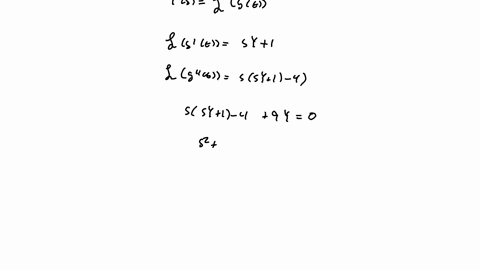 Y(s) = ℒ(g(t))
ℒ(g'(t)) = sY+1
ℒ(g''(t)) = s(sY+1)-4)
s(sY+1)-4 +9Y=0
s²+